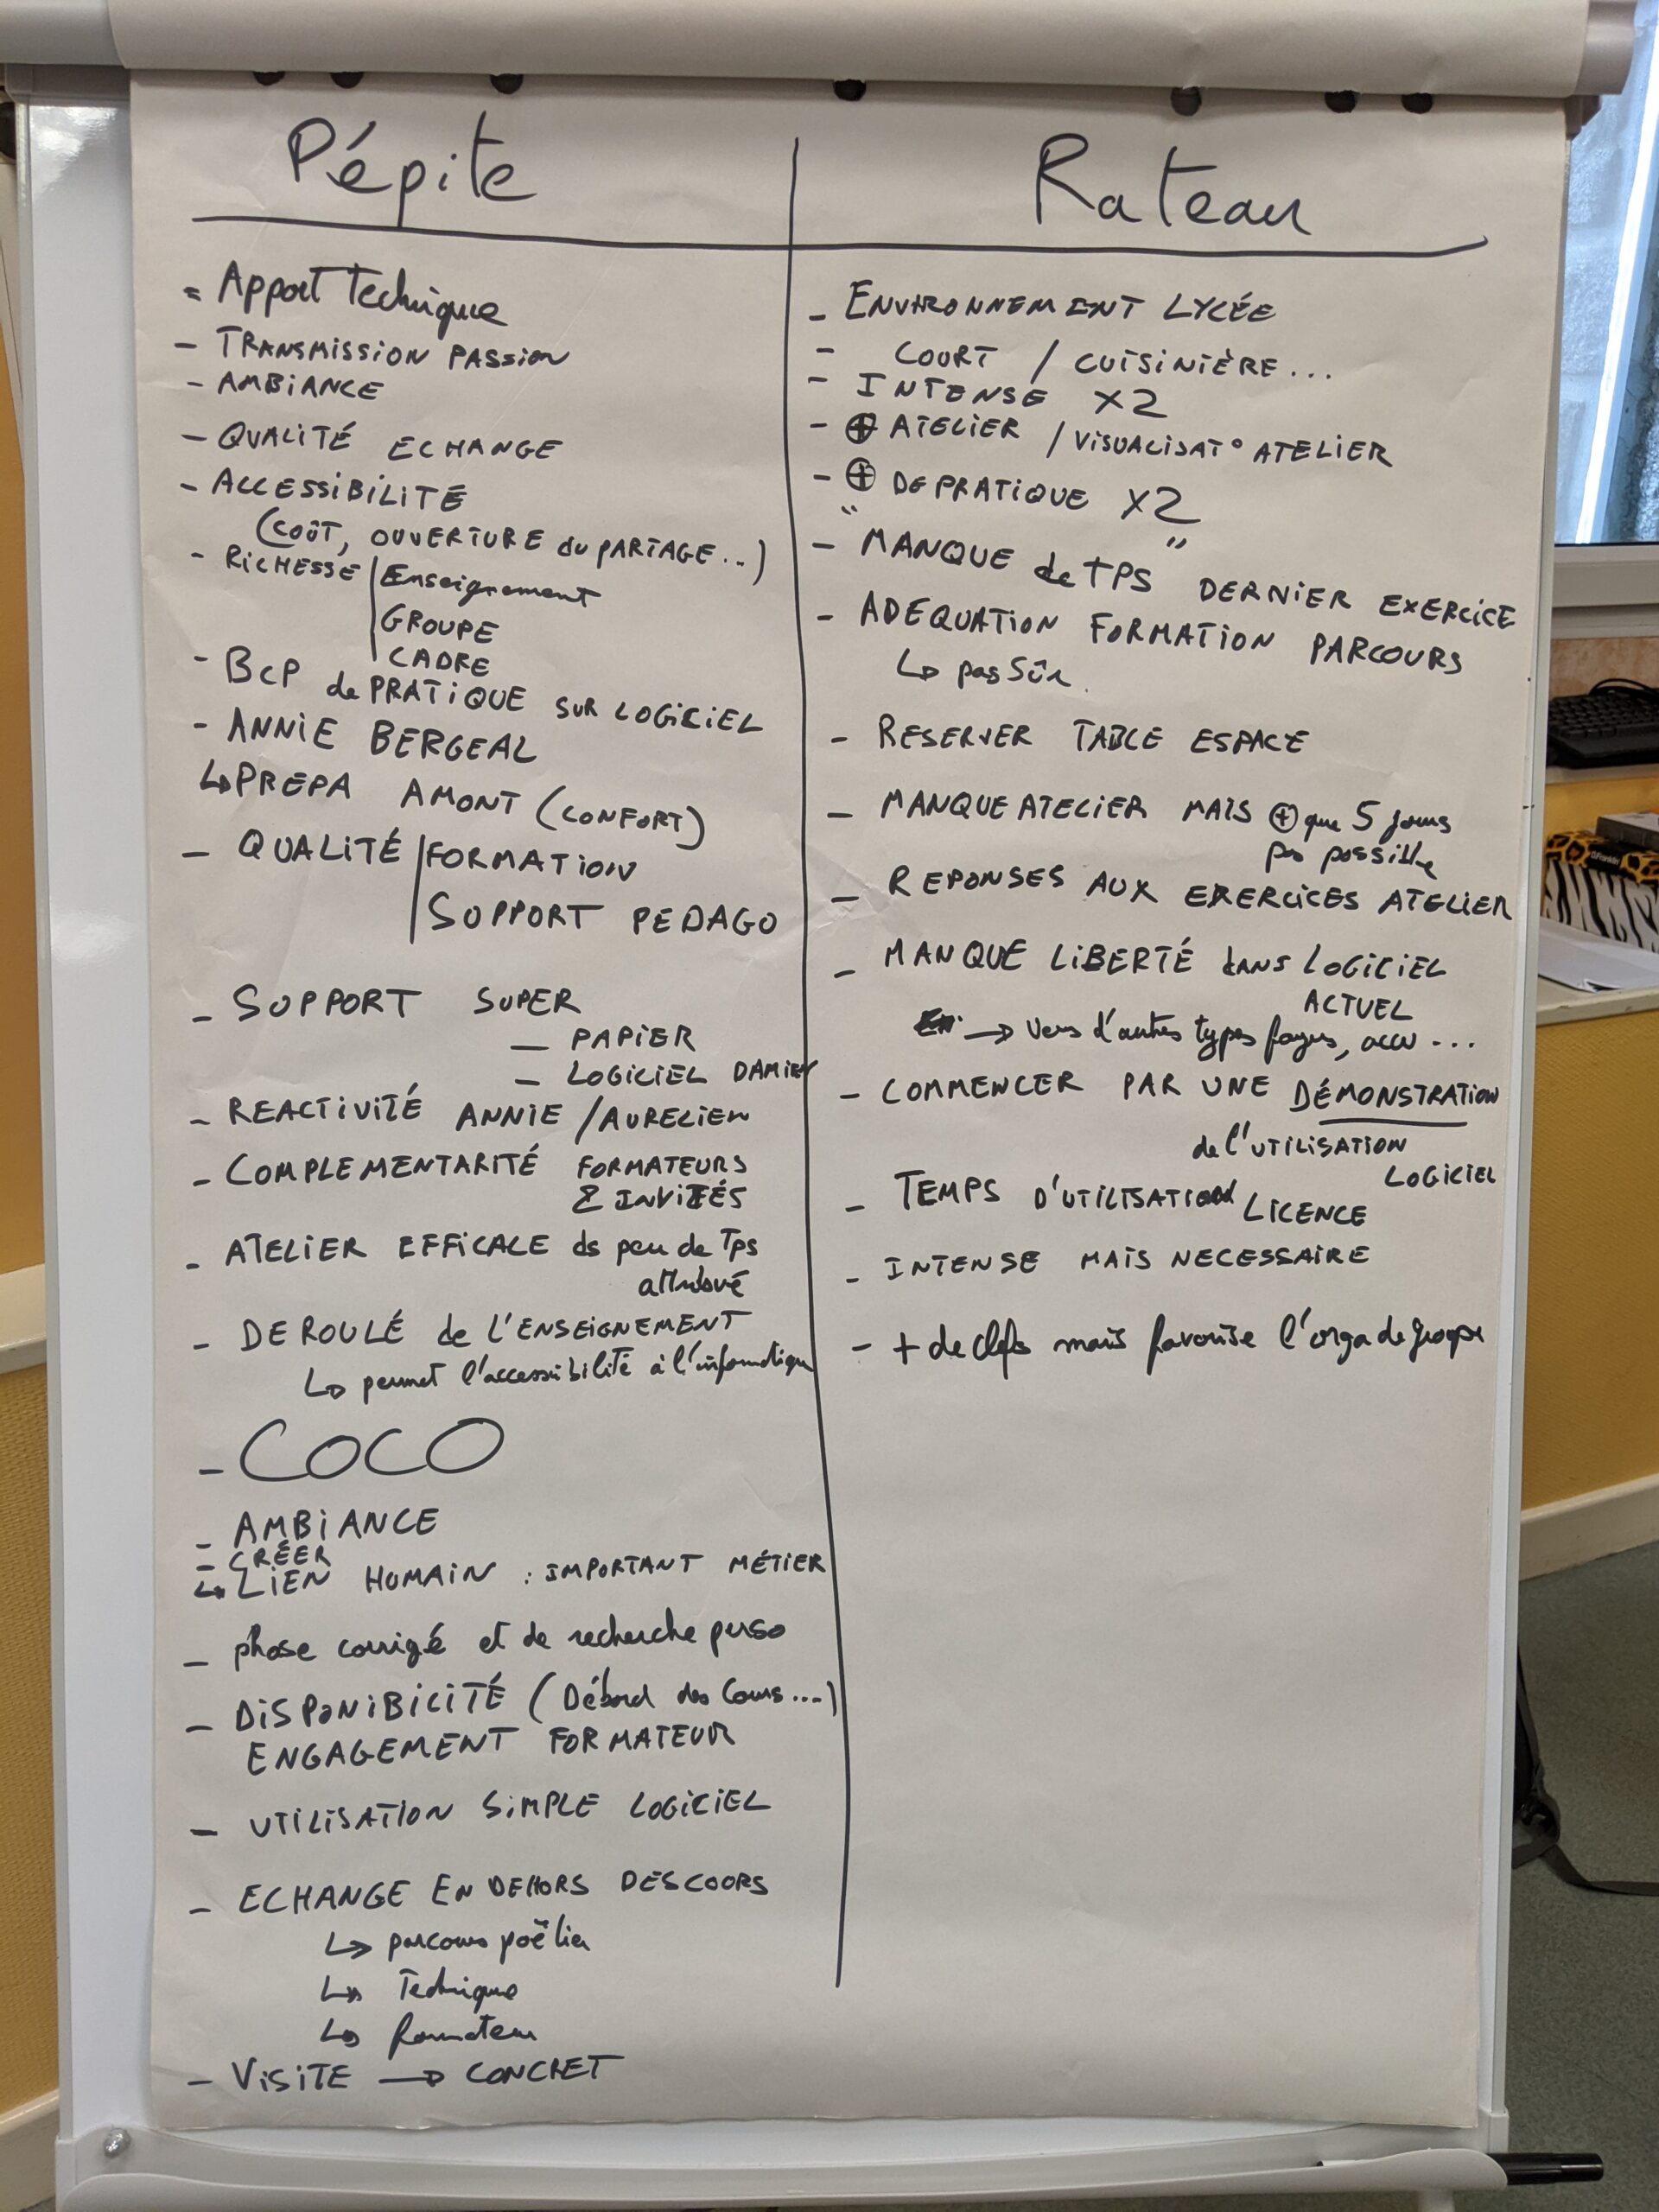 Pépite
- Apport Technique
- TRANSMISSION PASSION
- AMBIANCE
- QUALITÉ ECHANGE
- ACCESSIBILITÉ
(COÛT, OUVERTURE du PARTAGE...)
- RICHESSE | Enseignement
GROUPE
CADRE
- BCP de PRATIQUE SUR LOGICIEL
- ANNIE BERGEAL
↳ PREPA AMONT (CONFORT)
- QUALITÉ | FORMATION
| SUPPORT PEDAGO
- SUPPORT SUPER
- PAPIER
- LOGICIEL DAMIEN
- REACTIVITÉ ANNIE / AURELIEN
- COMPLEMENTARITÉ FORMATEURS
& INVITÉS
- ATELIER EFFICACE ds peu de Tps
attribué
- DEROULÉ de L'ENSEIGNEMENT
↳ permet l'accessibilité à l'informatique
- COCO
- AMBIANCE
- CRÉER
↳ LIEN HUMAIN : IMPORTANT MÉTIER
- phase corrigé et de recherche perso
- DISPONIBILITÉ (Débord des Cours....)
ENGAGEMENT FORMATEUR
- UTILISATION SIMPLE LOGICIEL
- ECHANGE EN DEHORS DES COURS
↳ parcours poêlier
↳ Technique
↳ formateur
- VISITE → CONCRET
Rateau
- ENVIRONNEMENT LYCÉE
- COURT / CUISINIÈRE...
- INTENSE X2
- ⊕ ATELIER / VISUALISAT° ATELIER
- ⊕ DE PRATIQUE X2
- "MANQUE de TPS" DERNIER EXERCICE
- ADEQUATION FORMATION PARCOURS
↳ pas Sûr.
- RESERVER TABLE ESPACE
- MANQUE ATELIER MAIS ⊕ que 5 jours
pas possible
- REPONSES AUX EXERCICES ATELIER
- MANQUE LIBERTÉ dans LOGICIEL
ACTUEL
→ vers d'autres types foyers, accu ...
- COMMENCER PAR UNE DÉMONSTRATION
de l'UTILISATION
LOGICIEL
- TEMPS D'UTILISATION LICENCE
- INTENSE MAIS NECESSAIRE
- + de clefs mais favorise l'orga de groupe